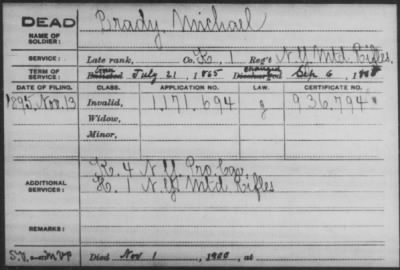 DEAD
NAME OF SOLDIER:
Brady, Michael
SERVICE:
Late rank, Co. K, 1 Reg't N.Y. Mtd. Rifles.
TERM OF SERVICE:
Enlisted July 21, 1865 Discharged Sep. 6, 186
DATE OF FILING. CLASS. APPLICATION NO. LAW. CERTIFICATE NO.
1895, Nov. 13 Invalid, 1,171,694 g 936,794
Widow,
Minor,
ADDITIONAL SERVICES:
K. 4 N.Y. Pro. Cav.
H. 1 N.Y. Mtd. Rifles
REMARKS:
Died Nov 1, 1900, at